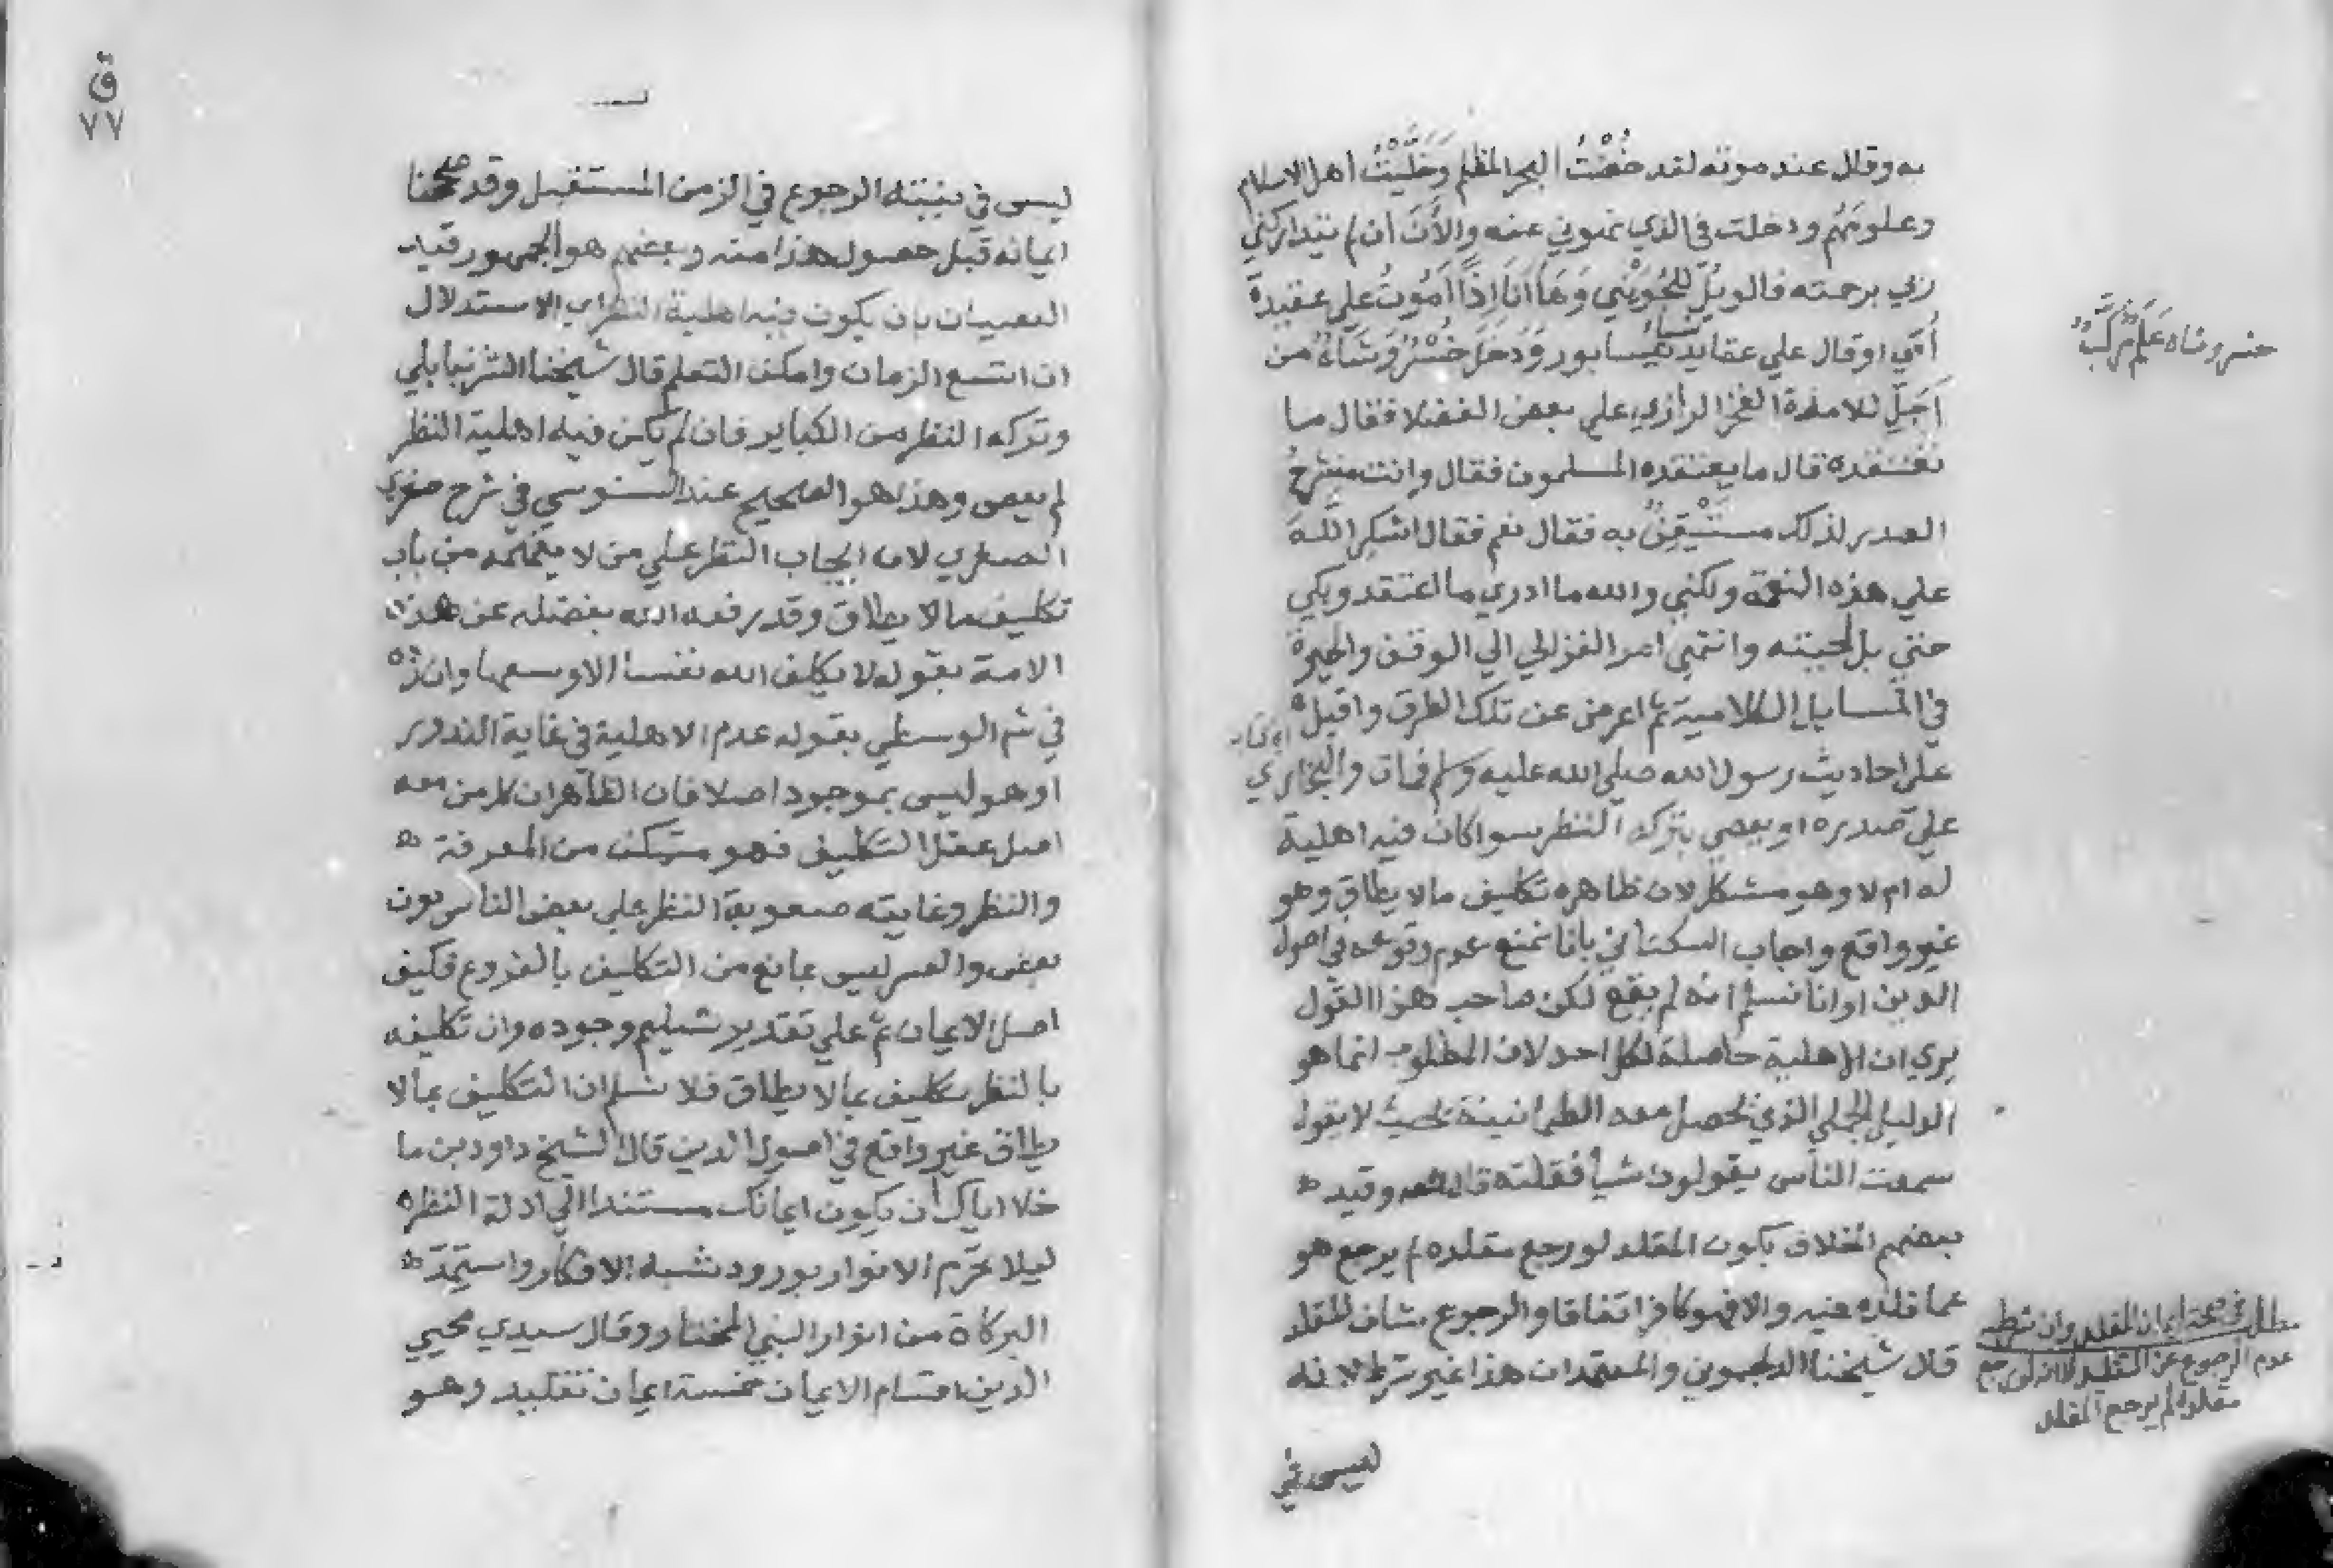 به وقال عند موته لقد خُضْتُ البحر الخظم وَخَلَّيْتُ اهل الاسلام
وعلومَهُم ودخلت في الذي نهوني عنه والأَنَ ان لم يتداركني
ربي برحمته فالويلُ للجُوَيْني وَهَا أنَا اِذًا اَمُوتُ علي عقيدة
أمي او قال علي عقايد نيسابور وَدَخَلَ خُسْرُوَشَاه من
اَجَلِّ تلامذة الفخر الرازي علي بعض الفضلا فقال ما
تعتقده قال ما يعتقده المسلمون فقال وانت منشرحُ
الصدر لذلك مستيْقِنٌ به فقال نعم فقال اشكر اللَّهَ
علي هذه النعمة ولكني والله ما ادري ما اعتقد وبكي
حتي بل لحيته وانتهي امر الغزالي الي الوقف والحيرة
في المسايل الكلامية ثم اعرض عن تلك الطرق واقبل
علي احاديث رسول الله صلي الله عليه وسلم فمات والبخاري
علي صدره او يعصي بتركه النظر سوا كان فيه اهلية
له ام لا وهو مشكل لان ظاهره تكليف ما لا يطاق وهو
غير واقع واجاب السكتاني بانا نمنع عدم وقوعه في اصول
الدين او انا نسلم انه لم يقع لكن صاحب هذا القول
يري ان الاهلية حاصلة لكل احد لان المطلوب انما هو
الدليل الجملي الذي تحصل معه الطمانينة بحيث لا يقول
سمعت الناس يقولون شيأ فقلته قال وقيد
بعضهم الخلاف بكون المقلد لو رجع مقلده لم يرجع هو
عما قلده فيه والا فهو كافر اتفاقا والرجوع مناف للتقلد
قال شيخنا الدلجموني والمعتمد ان هذا غير شرط لانه
ليس في
خسروشاه عَلَم مُرَكَّبٌ
مطلب في صحة ايمان المقلد وان شرطه
عدم الرجوع عن التقليد لانه لو رجع
مقلده لم يرجع المقلد
ق
٧٧
ليس في نيته الرجوع في الزمن المستقبل وقد صححنا
ايمانه قبل حصول هذا منه وبعضهم هو الجمهور قيد
العصيان بان يكون فيه اهلية النظر اي الاستدلال
ان اتسع الزمان وامكن التعلم قال شيخنا الشرنبابلي
وتركه النظر من الكباير فان لم يكن فيه اهلية النظر
لم يعص وهذا هو الصحيح عند السنوسي في شرح صغري
الصغري لان ايجاب النظر علي من لا يفهمه من باب
تكليف ما لا يطاق وقد رفعه الله بفضله عن هذه
الامة بقوله لا يكلف الله نفسا الا وسعها وان رده
في شم الوسطي بقوله عدم الاهلية في غاية الندور
او هو ليس بموجود اصلا فان الظاهر ان كل من معه
اصل عقل التكليف فهو متمكن من المعرفة
والنظر وغايته صعوبة النظر علي بعض الناس دون
بعض والعسر ليس بمانع من التكليف بالفروع فكيف
اصل الايمان ثم علي تقدير تسليم وجوده وان تكليفه
بالنظر تكليف بما لا يطاق فلا نسلم ان التكليف بما لا
يطاق غير واقع في اصول الدين قال الشيخ داود بن ما
خلا اياك أن يكون ايمانك مستندا الي ادلة النظر
ليلا تحرم الانوار بورود شبه الافكار واستمد
البركاة من انوار النبي المختار وقال سيدي محيي
الدين اقسام الايمان خمسة ايمان تقليد وهو